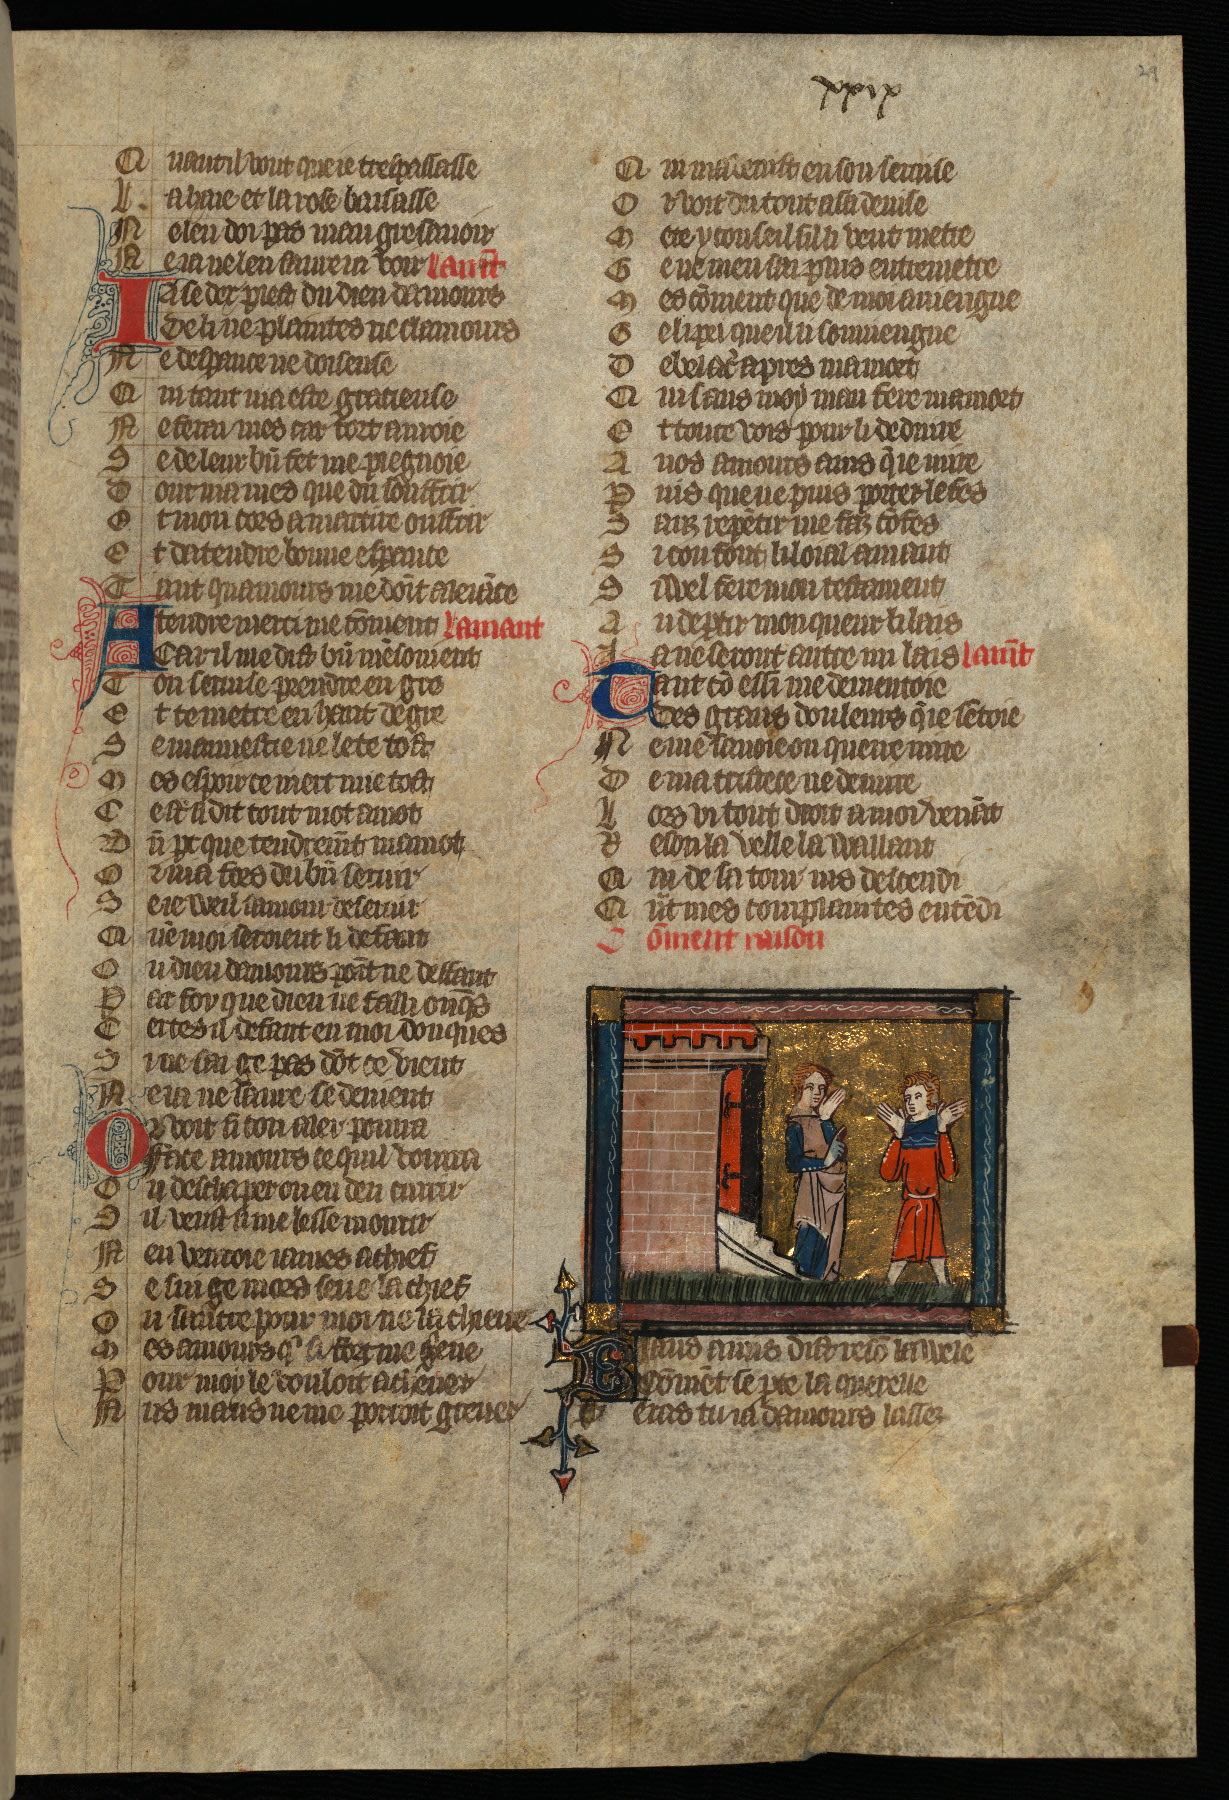 xxix
29
Quant il vout que ie trespassasse
La haie et la rose baisasse
Ne len doi pas mau gre sauoir
Ne ia ne len saurei a voir lam̃t
Ia se dex plest du dieu damours
De li ne plaintes ne clamours
Ne desperance ne doiseuse
Qui tant ma este gratieuse
Ne ferai mes car tort auroie
Se de leur bñ fet me plegnoie
Dont ma mes que du souffrir
Et mon cors a martire ouffrir
Et datendre bonne esperance
Tant quamours me doit aleiance
Atendre merci me cõuient lamant
Car il me dist bñ mẽ souuient
Ton seruise prendre en gre
Et te metre en haut degre
Se mauuestie ne le te tost
Mes espoir ce niert mie tost
Cest a dit tout mot a mot
Bñ pt que tendremt mamot
Or ni a fors du bñ seruir
Se ie weil samour deseruir
Quẽ moi seroient li defaut
Ou dieu damours point ne deffaut
Par foy que dieu ne failli onq̃s
Certes il defaut en moi donques
Si ne sai ge pas dõt ce vient
Ne ia ne saure se deuient
Or voit si con aler pourra
Face amours ce quil vorra
Ou deschaper ou en den courir
Sil veust si me lesse mourir
Nen vendroie iames a chief
Se sui ge mors se ne lachief
Ou sautre pour moi ne lachieue
Mes amours q̃ si fort me grieue
Pour moy le vouloit acheuer
Nus maus ne me porroit greuer
Qui mauenist en son seruise
Or voit du tout a sa deuise
Mete y conseil sil li veut metre
Ge ne men sai plus entremetre
Mes cõment que de moi auiengne
Ge li pri que il li souuiengne
De bel ac̃ apres ma mort
Qui sans moy mau fere ma mort
Et toute vois pour li deduire
A uos amours ains q̃ ie muire
Puis que ne puis porter le fes
Sanz repẽtir me faz cõfes
Si con font li loial amant
Si weil fere mon testament
Au deptir mon queur li lais
Ia ne seront autre mi lais lam̃t
Tant cõ essi me dementoie
Des grans douleurs q̃ ie sẽtoie
Ne me sauoie ou quere mire
De ma tristece ne de mire
Lors vi tout droit a moi venãt
Reson la velle la waillant
Qui de sa tour ius descendi
Qñt mes complaintes entẽdi
Cõment raison
Biaus amis dist resõ la wele
Cõmẽt se pte la querelle
Seras tu ia damours lassez